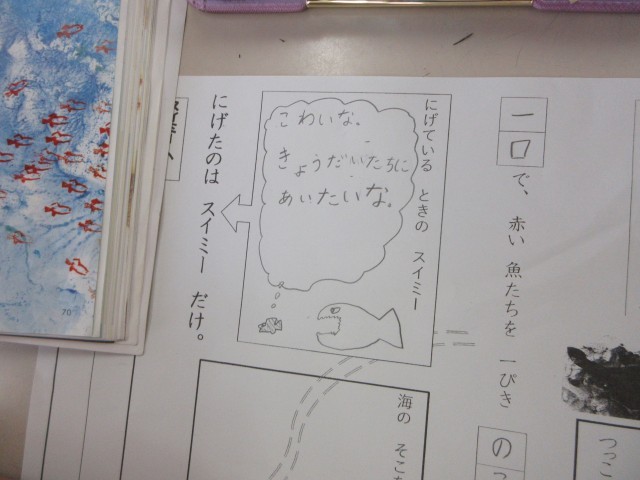 一口で、赤い 魚たちを 一ぴき
の
つっこ
にげている ときの スイミー
こわいな。
きょうだいたちに
あいたいな。
にげたのは スイミー だけ。
海の そこを
70